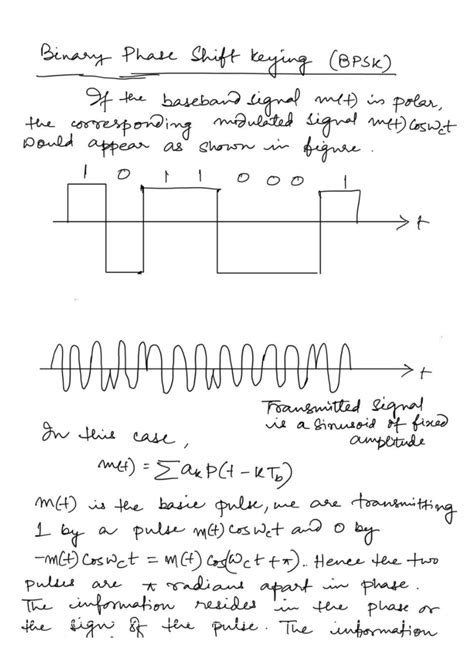 Binary Phase Shift Keying (BPSK)
If the baseband signal m(t) is polar,
the corresponding modulated signal m(t) cosωct
would appear as shown in figure.
1 0 1 1 0 0 0 1
t
t
Transmitted signal
is a sinusoid of fixed
amplitude
In this case,
m(t) = ∑ ak p(t - kTb)
m(t) is the basic pulse, we are transmitting
1 by a pulse m(t) cosωct and 0 by
-m(t) cosωct = m(t) cos(ωct + π). Hence the two
pulses are π radians apart in phase.
The information resides in the phase or
the sign of the pulse. The information